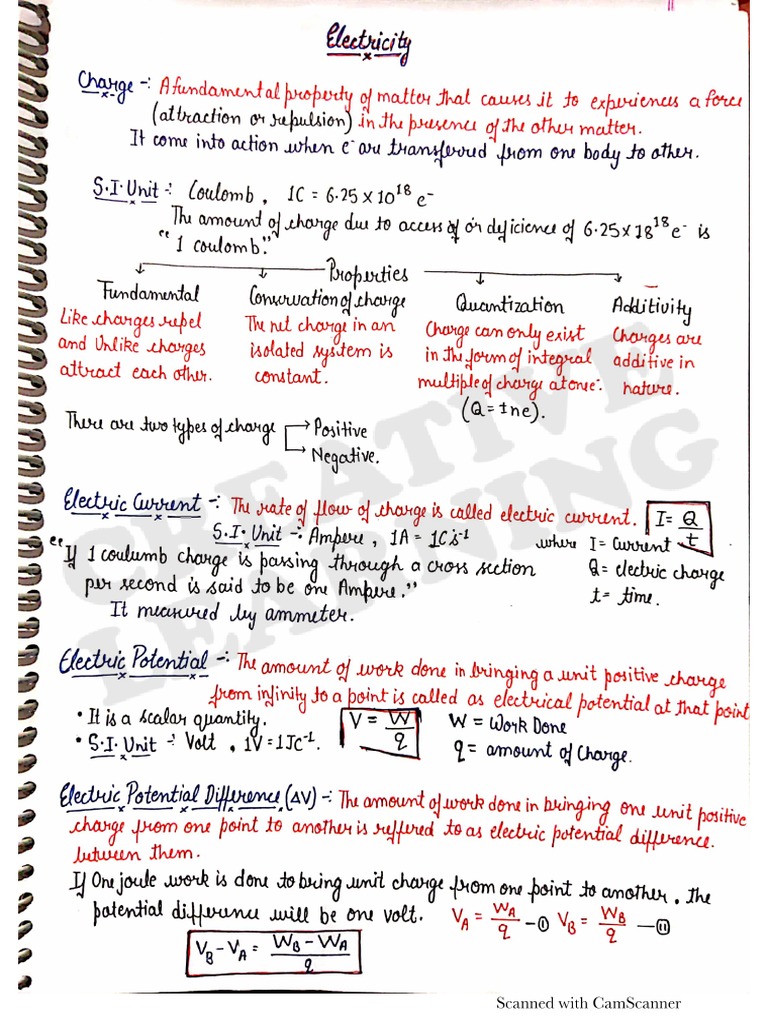 Electricity
Charge -: A fundamental property of matter that causes it to experiences a force
(attraction or repulsion) in the presence of the other matter.
It come into action when e⁻ are transferred from one body to other.
S.I. Unit -: Coulomb, 1C = 6.25 x 10¹⁸ e⁻
The amount of charge due to access of or deficience of 6.25x18¹⁸ e⁻ is
"1 coulomb."
Properties
Fundamental
Like charges repel
and Unlike charges
attract each other.
Conservation of charge
The net charge in an
isolated system is
constant.
Quantization
Charge can only exist
in the form of integral
multiple of charge at one-.
(Q = ±ne).
Additivity
Charges are
additive in
nature.
There are two types of charge → Positive
→ Negative.
Electric Current -: The rate of flow of charge is called electric current. I = Q/t
S.I. Unit -: Ampere, 1A = 1Cs⁻¹ where I = Current
"If 1 coulumb charge is passing through a cross section Q = electric charge
per second is said to be one Ampere." t = time.
It measured by ammeter.
Electric Potential -: The amount of work done in bringing a unit positive charge
from infinity to a point is called as electrical potential at that point
• It is a scalar quantity. V = W/q W = Work Done
• S.I. Unit -: Volt, 1V = 1JC⁻¹. q = amount of Charge.
Electric Potential Difference (ΔV) -: The amount of work done in bringing one unit positive
charge from one point to another is reffered to as electric potential difference
between them.
If One joule work is done to bring unit charge from one point to another. The
potential difference will be one volt. V_A = W_A/q —① V_B = W_B/q —⑪
V_B - V_A = W_B - W_A/q
CREATIVE
LEARNING
Scanned with CamScanner